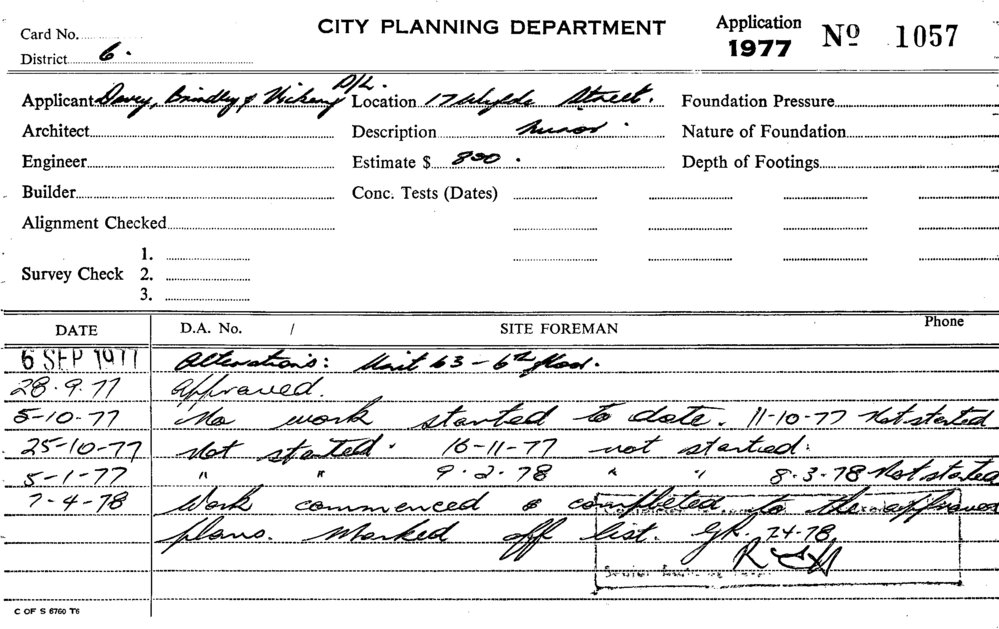 CITY PLANNING DEPARTMENT
Card No.
Application 1977 Nº 1057
District 6.
Applicant Davey, Brindley & Vickery P/L. Location 17 Wylde Street. Foundation Pressure
Architect Description Minor. Nature of Foundation
Engineer Estimate $ 800. Depth of Footings
Builder Conc. Tests (Dates)
Alignment Checked
Survey Check 1.
2.
3.
DATE D.A. No. / SITE FOREMAN Phone
6 SEP 1977 Alterations: Unit 63 - 6th floor.
28.9.77 Approved.
5-10-77 No work started to date. 11-10-77 Not started
25-10-77 Not started. 16-11-77 not started.
5-1-77 " " 9.2.78 " " 8.3.78 Not started
7-4-78 Work commenced & completed to the approved
plans. Marked off list. 7.4.78.
Senior
C OF S 6760 T6